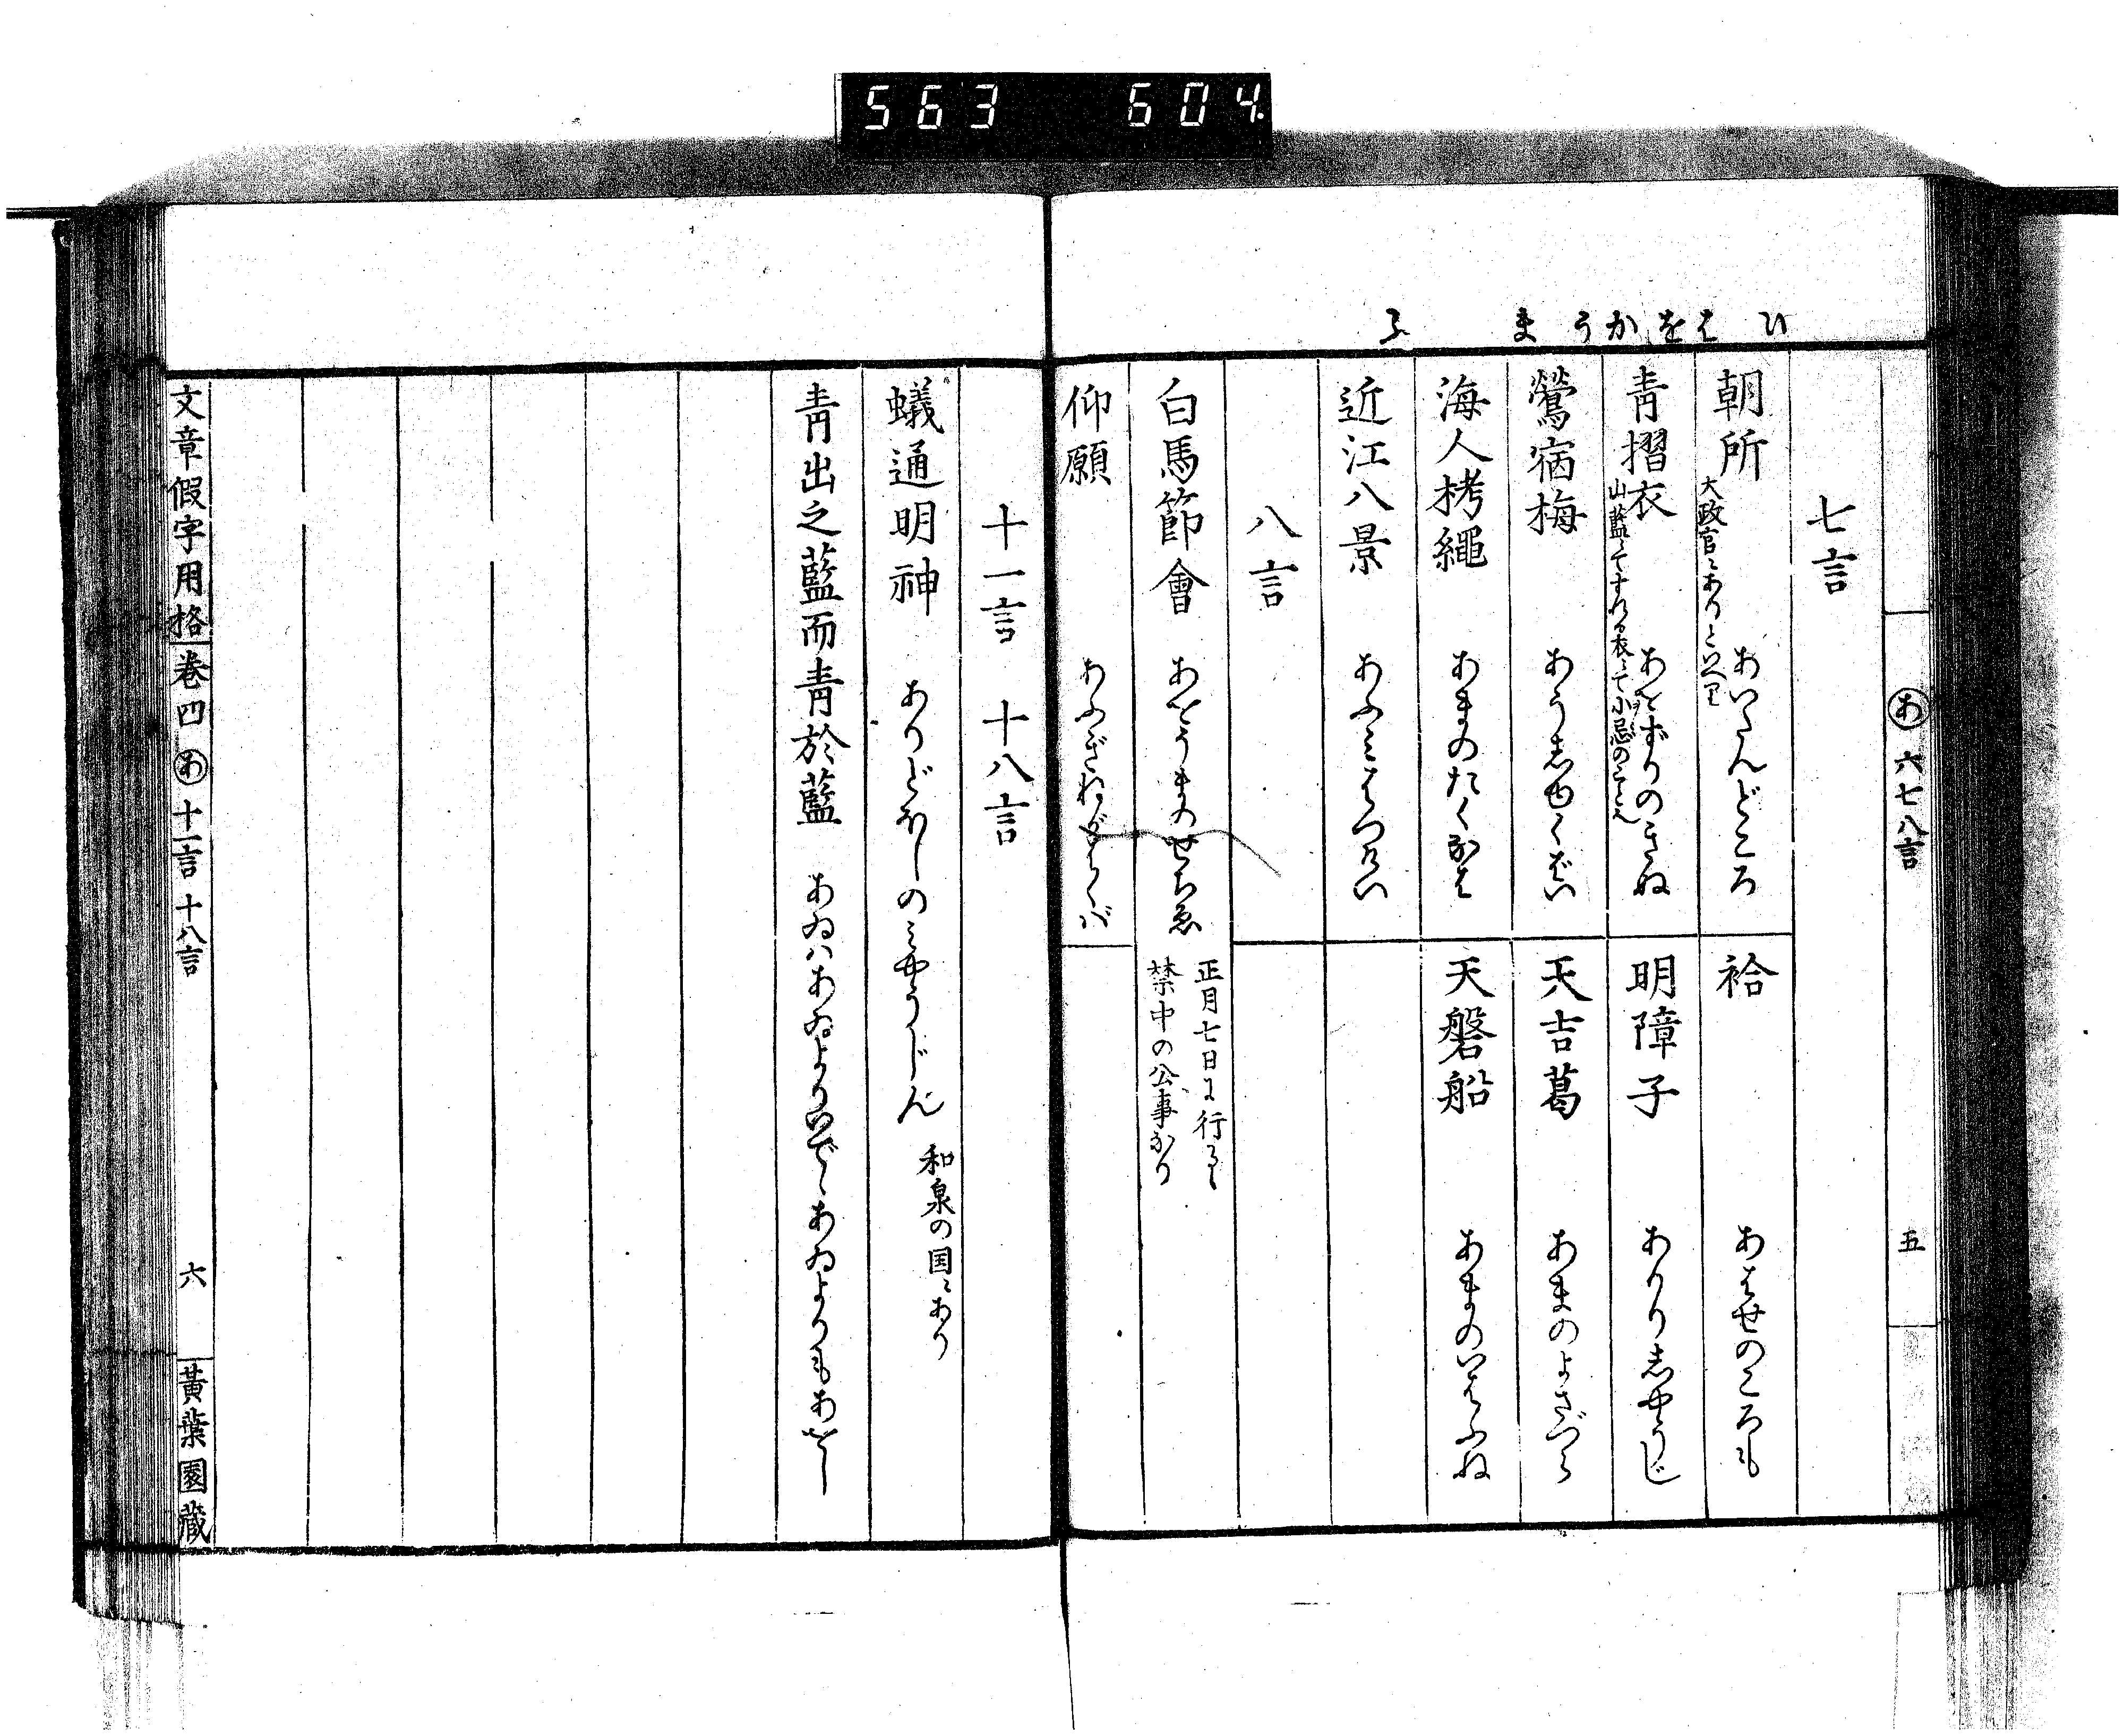 563 604
ひ はをかうま ふ
あ 六七八言 五
七言
朝所 あいたんどころ 大政官にありといへり
袷 あはせのころも
青摺衣 あをずりのきぬ 山藍にてすれる衣にて小忌のころもなり
明障子 あかりしやうじ
鶯宿梅 あうしゆくばい
天吉葛 あまのよさづら
海人栲繩 あまのたくなは
天磐船 あまのいはふね
近江八景 あふみはつけい
八言
白馬節會 あをうまのせちゑ 正月七日に行るゝ
禁中の公事なり
仰願 あふぎねがはくバ
十一言 十八言
蟻通明神 ありどほしのみやうじん 和泉の国にあり
青出之藍而青於藍 あゐハあゐよりいでゝあゐよりもあをし
文章假字用格 巻四 あ 十一言 十八言 六 黃葉園藏